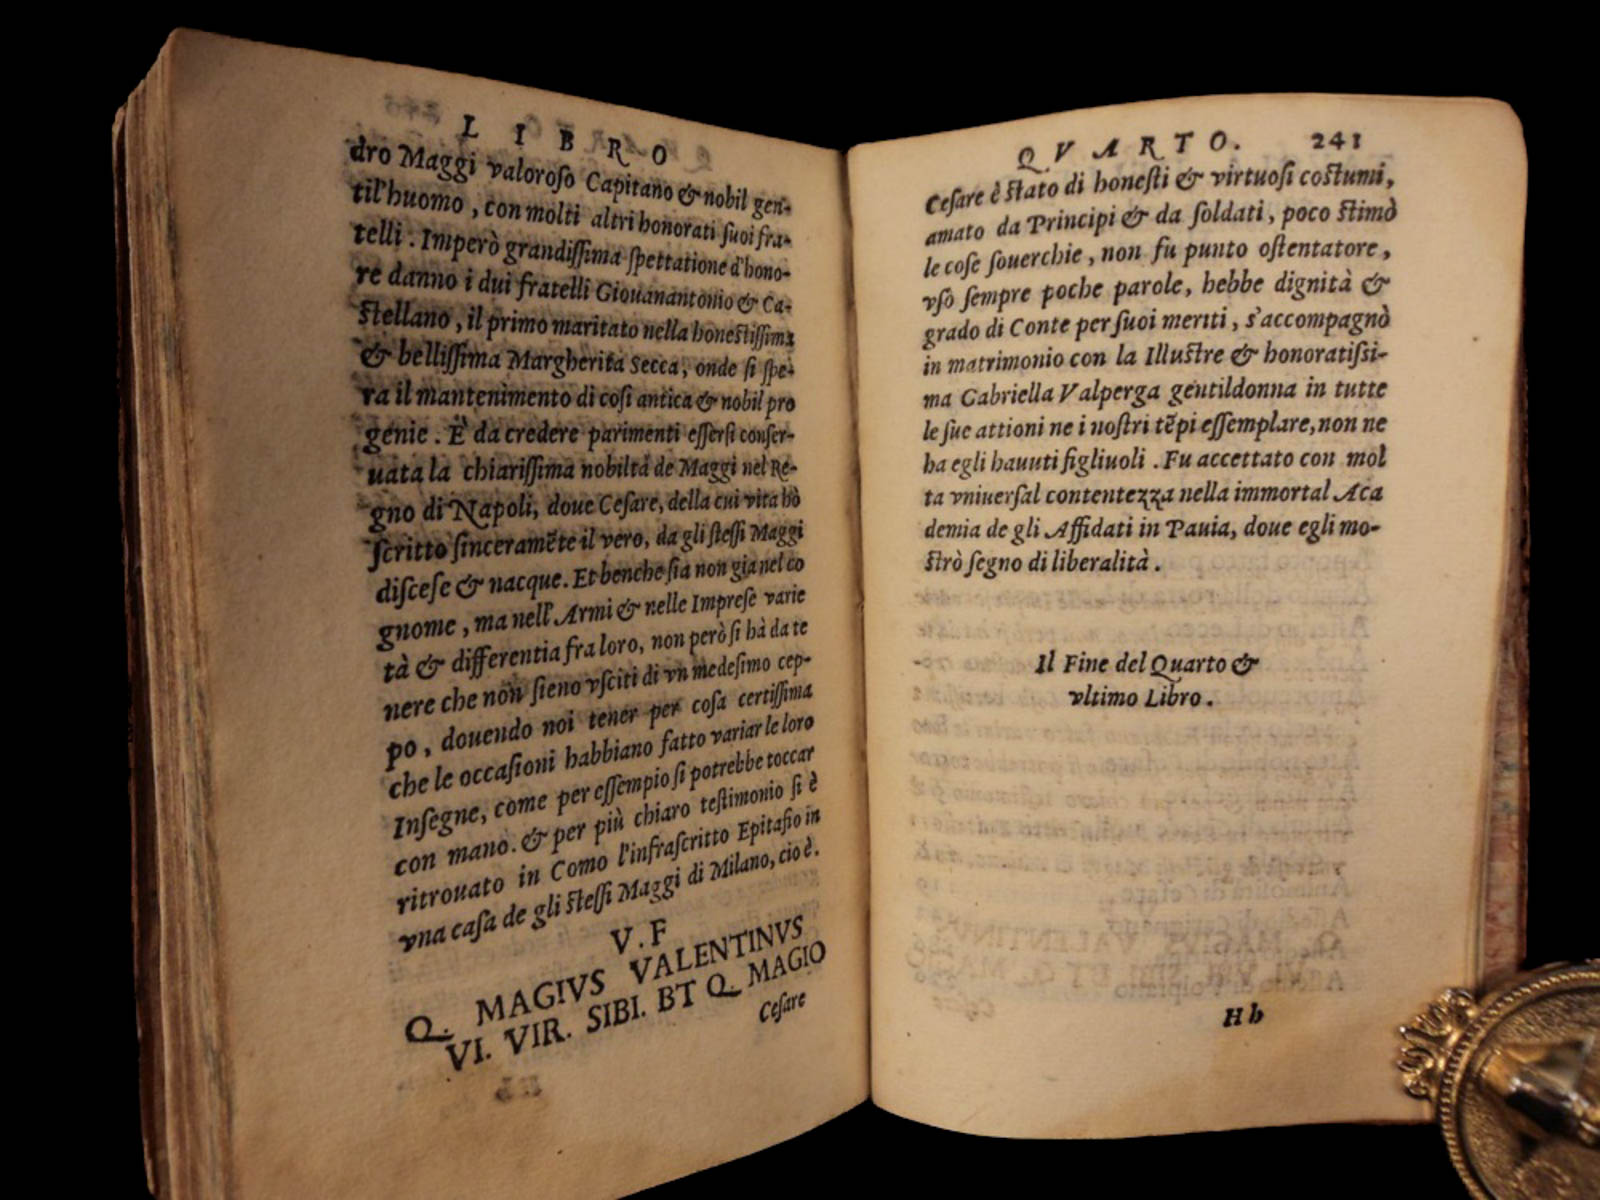 L I B R O
dro Maggi valoroſo Capitano & nobil gen-
til'huomo, con molti altri honorati ſuoi fra-
telli. Imperò grandiſſima ſpettatione d'hono-
re danno i dui fratelli Giouanantonio & Ca-
ſtellano, il primo maritato nella honeſtiſſima
& belliſſima Margherita Secca, onde ſi ſpe-
ra il mantenimento di coſi antica & nobil pro
genie. È da credere parimenti eſſerſi conſer-
uata la chiariſſima nobiltà de Maggi nel Re-
gno di Napoli, doue Ceſare, della cui vita hò
ſcritto ſinceramẽte il vero, da gli ſteſſi Maggi
diſceſe & nacque. Et benche ſia non gia nel co
gnome, ma nell'Armi & nelle Impreſe varie
tà & differentia fra loro, non però ſi hà da te
nere che non ſieno vſciti di vn medeſimo cep-
po, douendo noi tener per coſa certiſſima
che le occaſioni habbiano fatto variar le loro
Inſegne, come per eſſempio ſi potrebbe toccar
con mano. & per più chiaro teſtimonio ſi è
ritrouato in Como l'infraſcritto Epitafio in
vna caſa de gli ſteſſi Maggi di Milano, cio è.
V. F
Q. MAGIVS VALENTINVS
VI. VIR. SIBI. BT Q. MAGIO
Ceſare
Q V A R T O. 241
Ceſare è ſtato di honeſti & virtuoſi coſtumi,
amato da Principi & da ſoldati, poco ſtimò
le coſe ſouerchie, non fu punto oſtentatore,
vſò ſempre poche parole, hebbe dignità &
grado di Conte per ſuoi meriti, s'accompagnò
in matrimonio con la Illuſtre & honoratiſsi-
ma Gabriella Valperga gentildonna in tutte
le ſue attioni ne i noſtri tẽpi eſſemplare, non ne
ha egli hauuti figliuoli. Fu accettato con mol
ta vniuerſal contentezza nella immortal Aca
demia de gli Affidati in Pauia, doue egli mo-
ſtrò ſegno di liberalità.
Il Fine del Quarto &
vltimo Libro.
H h